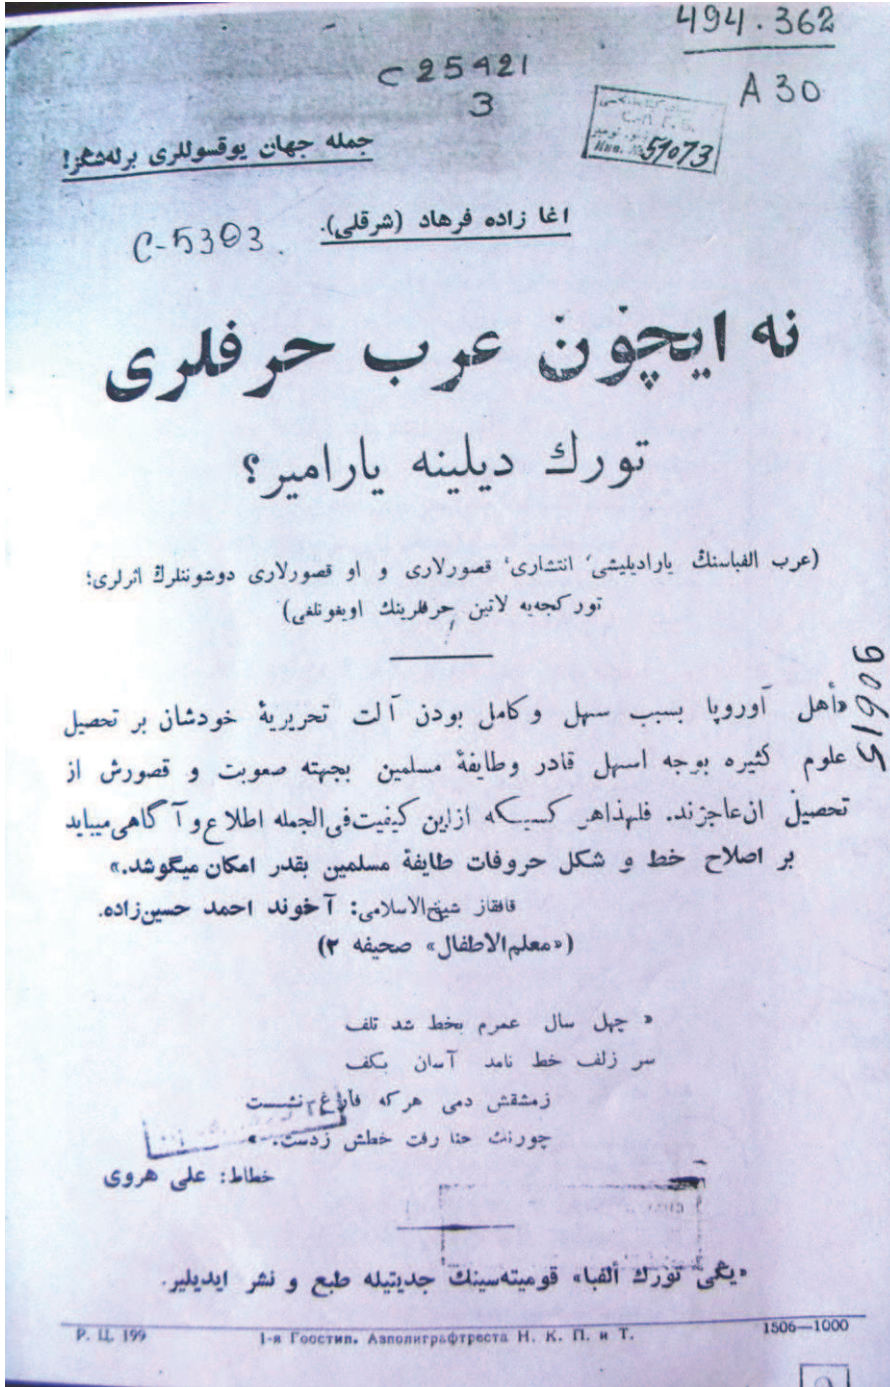 494.362
C 25421
3
A 30
51073
جمله جهان یوقسوللری برله‌شڭز!
اغا زاده فرهاد (شرقلی).
C-5303
نه ایچون عرب حرفلری
تورك دیلینه یارامیر؟
(عرب الفباسنڭ یارادیلیشی، انتشاری، قصورلاری و او قصورلاری دوشوننلرڭ اثرلری؛
تورکجه‌یه لاتین حرفلرینڭ اویغونلغی)
90615
«أهل آوروپا بسبب سهل و کامل بودن آلت تحریریهٔ خودشان بر تحصیل
علوم کثیره بوجه اسهل قادر وطایفهٔ مسلمین بجهته صعوبت و قصورش از
تحصیل ان عاجزند. فلهذا هر کسیکه ازاین کیفیت فی‌الجمله اطلاع و آگاهی میباید
بر اصلاح خط و شکل حروفات طایفهٔ مسلمین بقدر امکان میگوشد.»
قافقاز شیخ‌الاسلامی: آخوند احمد حسین‌زاده.
(«معلم‌الاطفال» صحیفه ۲)
« چهل سال عمرم بخط شد تلف
سر زلف خط نامد آسان بکف
زمشقش دمی هرکه فارغ نشست
چورنك حنا رفت خطش زدست. »
خطاط: علی هروی
«یڭی تورك ألفبا» قومیته‌سینڭ جدیتیله طبع و نشر ایدیلیر.
Р. Ц. 199
1-я Гостип. Азполиграфтреста Н. К. П. и Т.
1506—1000